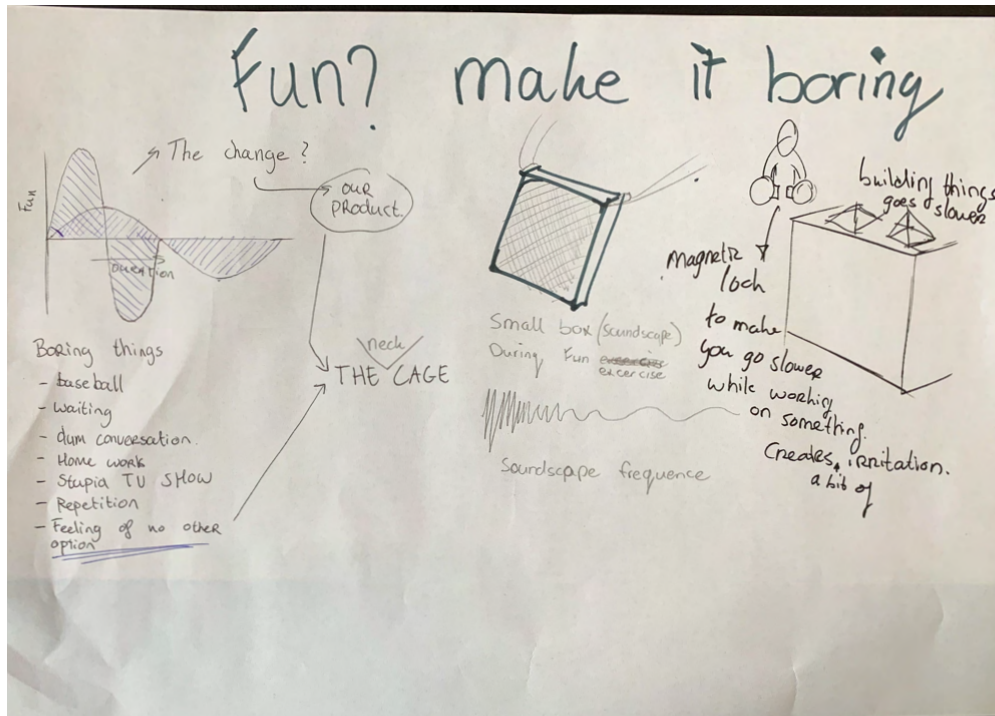 Fun? make it boring
The change?
our
product.
Fun
Duration
Boring things
- baseball
- Waiting
- dum conversation.
- Home work
- Stupia TV SHOW
- Repetition
- Feeling of no other
option
neck
THE CAGE
Small box (soundscape)
During Fun
excercise
Soundscape frequence
building things
goes slower
magnetic
lock
to make
you go slower
while working
on something.
Creates irritation.
a bit of